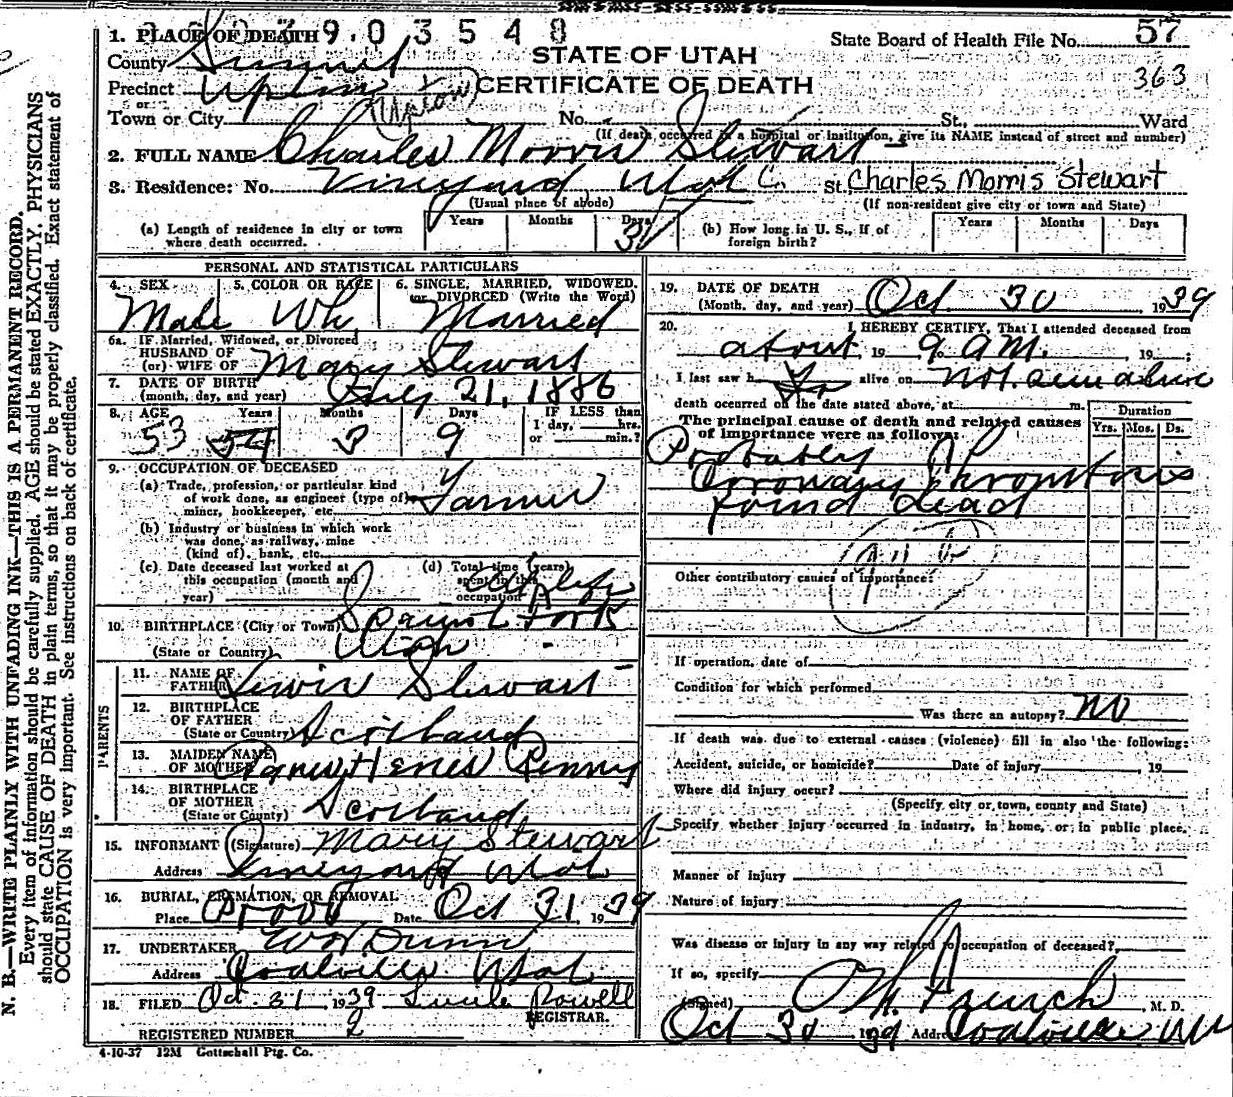 1. PLACE OF DEATH 9 0 3 5 4 8
State Board of Health File No. 57
363
STATE OF UTAH
CERTIFICATE OF DEATH
County Summit
Precinct Upton (Upton)
or
Town or City No. St. Ward
(If death occurred in a hospital or institution, give its NAME instead of street and number)
2. FULL NAME Charles Morris Stewart
3. Residence: No. Vineyard, Utah Co. St. Charles Morris Stewart
(Usual place of abode)
(If non-resident give city or town and State)
(a) Length of residence in city or town where death occurred. Years Months Days 3
(b) How long in U. S., if of foreign birth? Years Months Days
PERSONAL AND STATISTICAL PARTICULARS
4. SEX 5. COLOR OR RACE 6. SINGLE, MARRIED, WIDOWED, or DIVORCED (Write the Word)
Male Wh. Married
6a. IF Married, Widowed, or Divorced
HUSBAND OF
(or) WIFE OF Mary Stewart
7. DATE OF BIRTH
(month, day, and year) 21, 1886
8. AGE Years Months Days IF LESS than
1 day, hrs.
or min.?
53 54 3 9
9. OCCUPATION OF DECEASED
(a) Trade, profession, or particular kind
of work done, as engineer (type of)
miner, bookkeeper, etc. Farmer
(b) Industry or business in which work
was done, as railway, mine
(kind of), bank, etc.
(c) Date deceased last worked at
this occupation (month and
year)
(d) Total time (years)
spent in this
occupation life
10. BIRTHPLACE (City or Town) Spanish Fork
(State or Country) Utah
PARENTS
11. NAME OF
FATHER Lewis Stewart
12. BIRTHPLACE
OF FATHER
(State or Country) Scotland
13. MAIDEN NAME
OF MOTHER Agnes Penny
14. BIRTHPLACE
OF MOTHER
(State or County) Scotland
15. INFORMANT (Signature) Mary Stewart
Address Vineyard Utah
16. BURIAL, CREMATION, OR REMOVAL
Place Provo Date Oct 31 1939
17. UNDERTAKER Dunn
Address Coalville Utah
18. FILED Oct. 31 1939 Powell
REGISTRAR.
REGISTERED NUMBER 2
4-10-37 12M Gottschall Ptg. Co.
19. DATE OF DEATH
(Month, day, and year) Oct. 30 1939
20. I HEREBY CERTIFY, That I attended deceased from
about, 19 9 AM. , 19 ;
I last saw h alive on Not seen alive
death occurred on the date stated above, at m.
The principal cause of death and related causes
of importance were as follows:
Duration
Yrs. Mos. Ds.
Probably
Coronary Thrombosis
found dead
Other contributory causes of importance:
If operation, date of
Condition for which performed
Was there an autopsy? No
If death was due to external causes (violence) fill in also the following:
Accident, suicide, or homicide? Date of injury , 19
Where did injury occur?
(Specify city or town, county and State)
Specify whether injury occurred in industry, in home, or in public place.
Manner of injury
Nature of injury
Was disease or injury in any way related to occupation of deceased?
If so, specify
(Signed) French , M. D.
Oct 30 1939 Address Coalville Ut
N. B.—WRITE PLAINLY WITH UNFADING INK—THIS IS A PERMANENT RECORD.
Every item of information should be carefully supplied. AGE should be stated EXACTLY. PHYSICIANS
should state CAUSE OF DEATH in plain terms, so that it may be properly classified. Exact statement of
OCCUPATION is very important. See instructions on back of certificate.